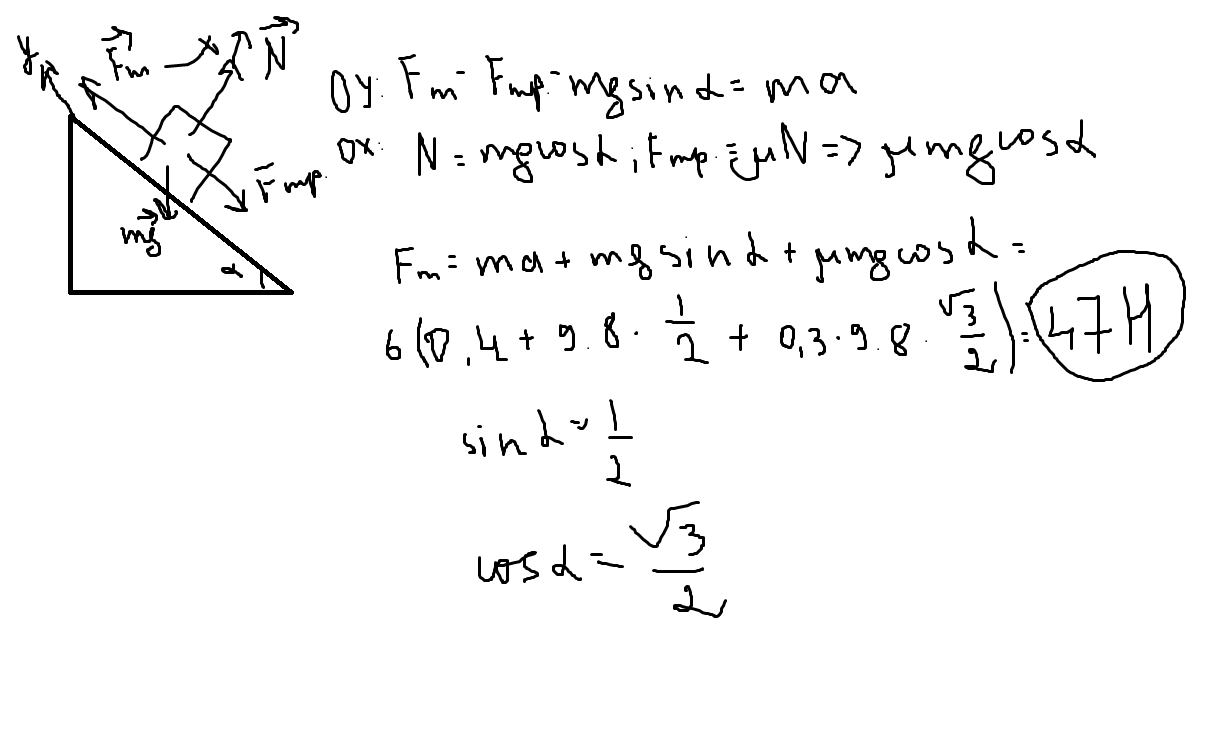 y F⃗m x N⃗
Oy: Fm - Fmp - mgsinα = ma
Ox: N = mgcosα ; Fmp = μN => μmgcosα
F⃗mp.
mg⃗
α
Fm = ma + mgsinα + μmgcosα =
6(0,4 + 9.8 · 1/2 + 0,3 · 9.8 · √3/2) = 47H
sinα = 1/2
cosα = √3/2